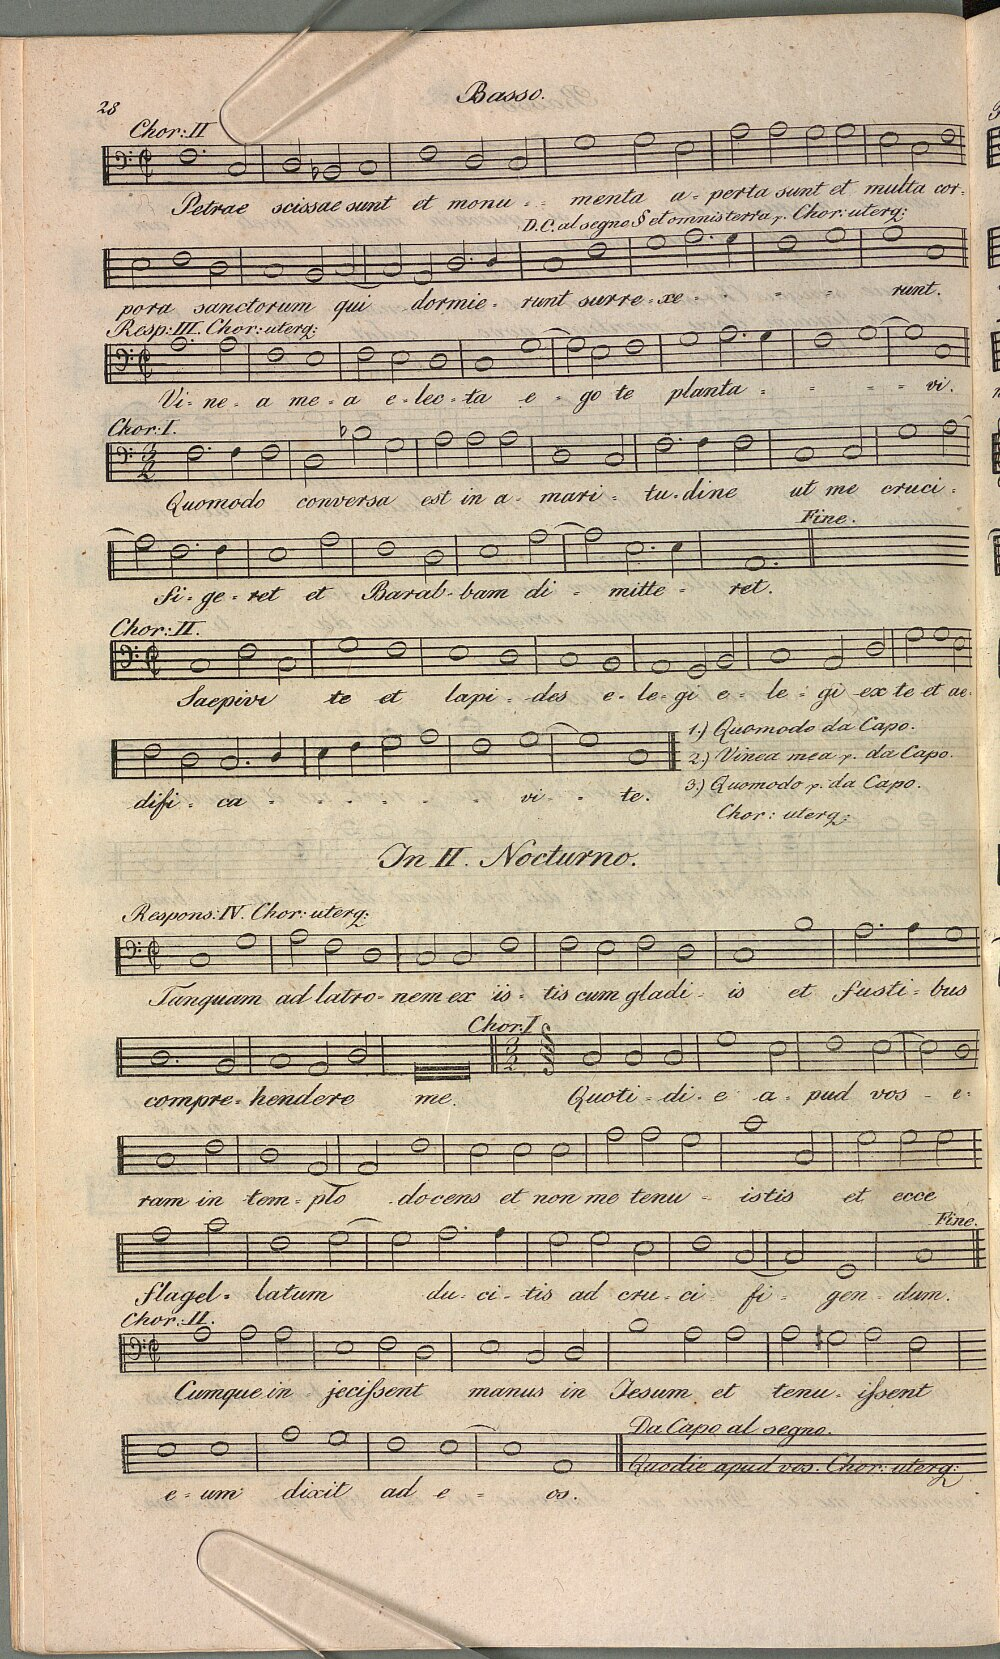 28
Basso.
Chor: II
Petrae scissae sunt et monu - menta a - perta sunt et multa cor-
D.C. al segno § et omnis terra p. Chor: uterq:
pora sanctorum qui dormie - runt surre - xe - - - - runt.
Resp: III. Chor: uterq:
Vi - ne - a me - a e - lec - ta e - go te planta - - - - vi.
Chor: I.
3 2
Quomodo conversa est in a - mari - tu - dine ut me cruci -
Fine.
fi - ge - ret et Barab - bam di - mitte - ret.
Chor: II.
Saepivi te et lapi - des e - le - gi e - le - gi ex te et ae
difi - ca - - - - - - vi - - te.
1.) Quomodo da Capo.
2.) Vinea mea p. da Capo.
3.) Quomodo p. da Capo.
Chor: uterq:
In II. Nocturno.
Respons: IV. Chor: uterq:
Tanquam ad latro - nem ex is - tis cum gladi - is et fusti - bus
Chor: I
3 2
compre - hendere me. Quoti - di - e a - pud vos - e -
ram in tem - plo docens et non me tenu - istis et ecce
Fine.
flagel - latum du - ci - tis ad cru - ci fi - gen - dum.
Chor: II.
Cumque in jecissent manus in Jesum et tenu - issent
Da Capo al segno.
Quodie apud vos. Chor: uterq:
e - um dixit ad e - os.